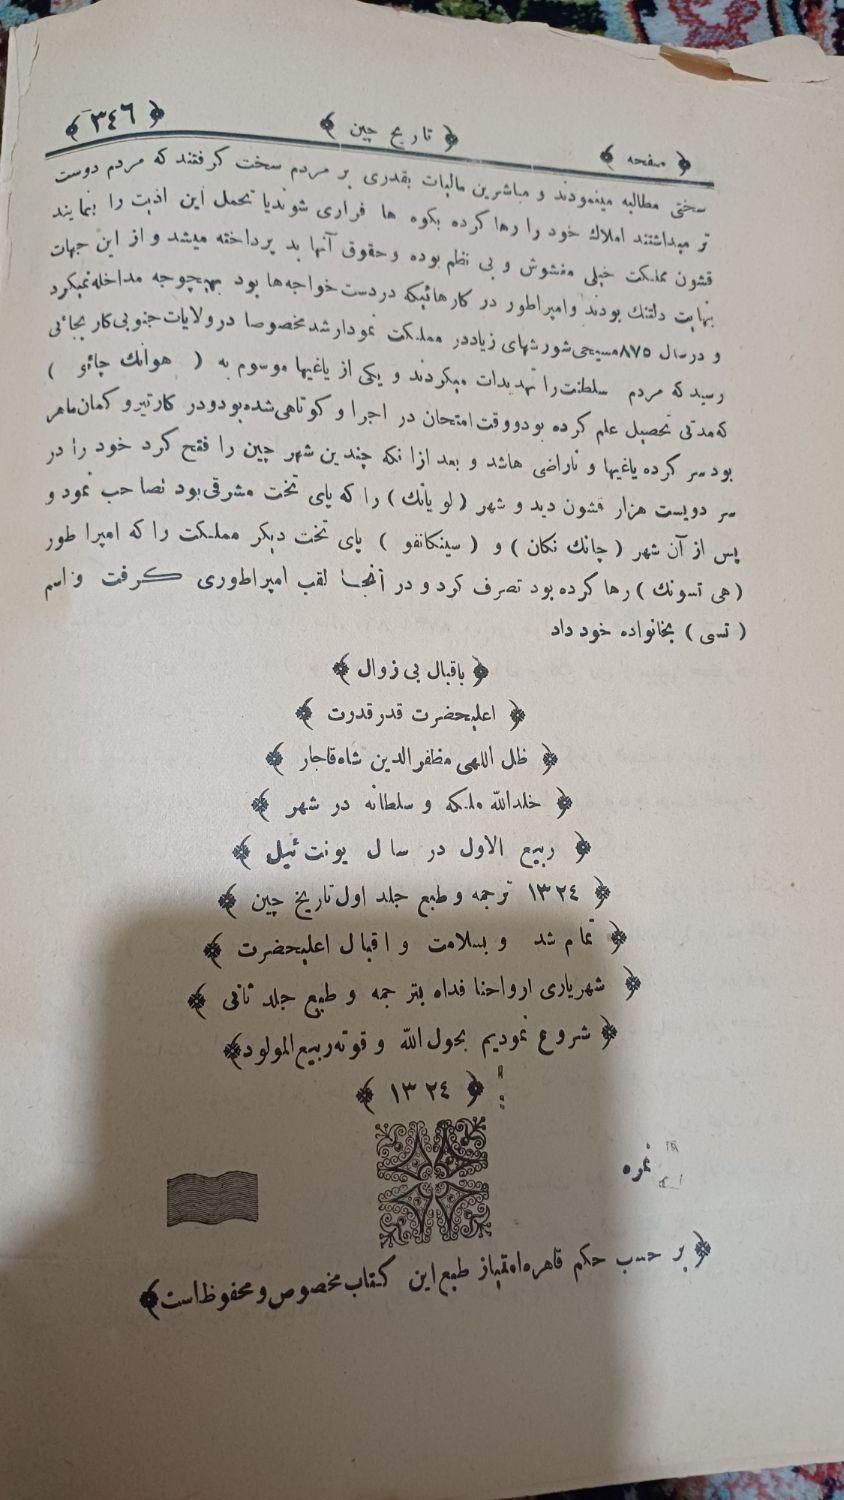 ﴿ صفحه ﴾ ﴿ تاریخ چین ﴾ ﴿ ٣٤٦ ﴾
سختی مطالبه مینمودند و مباشرین مالیات بقدری بر مردم سخت گرفتند که مردم دوست
تر میداشتند املاك خود را رها کرده بکوه ها فراری شوندیا تحمل این اذیت را بنمایند
قشون مملکت خیلی مغشوش و بی نظم بوده وحقوق آنها بد پرداخته میشد و از این جهات
نهایت دلتنك بودند وامپراطور در کارهائیکه دردست خواجه‌ها بود بهیچوجه مداخله‌نمیکرد
و درسال ٨٧٥ مسیحی شورشهای زیاددر مملکت نمودارشد مخصوصا درولایات جنوبی کار بجائی
رسید که مردم سلطنت را تهدیدات میکردند و یکی از یاغیها موسوم به ( هوانك چائو )
که‌مدتی تحصیل علم کرده بودووقت امتحان در اجرا و کوتاهی شده بودودر کارتیرو کمان‌ماهر
بودسر کرده یاغیها و ناراضی هاشد و بعد ازا نکه چندین شهر چین را فتح کرد خود را در
سر دویست هزار قشون دید و شهر ( لو یانك ) را که پای تخت مشرقی بود تصاحب نمود و
پس از آن شهر ( چانك نکان ) و ( سینکانفو ) پای تخت دیکر مملکت را که امپرا طور
( هی تسونك ) رها کرده بود تصرف کرد و در آنجا لقب امپراطوری گرفت و اسم
( تسی ) بخانواده خود داد
﴿ باقبال بی زوال ﴾
﴿ اعلیحضرت قدر قدرت ﴾
﴿ ظل اللهی مظفرالدین شاه قاجار ﴾
﴿ خلدالله ملکه و سلطانه در شهر ﴾
﴿ ربیع الاول در سال یونت ئیل ﴾
﴿ ١٣٢٤ ترجمه و طبع جلد اول تاریخ چین ﴾
﴿ تمام شد و بسلامت و اقبال اعلیحضرت ﴾
﴿ شهریاری ارواحنا فداه بتر جمه و طبع جلد ثانی ﴾
﴿ شروع نمودیم بحول الله و قوته ربیع المولود ﴾
﴿ ١٣٢٤ ﴾
نمره
﴿ بر حسب حکم قاهره امتیاز طبع این کتاب مخصوص و محفوظ است ﴾